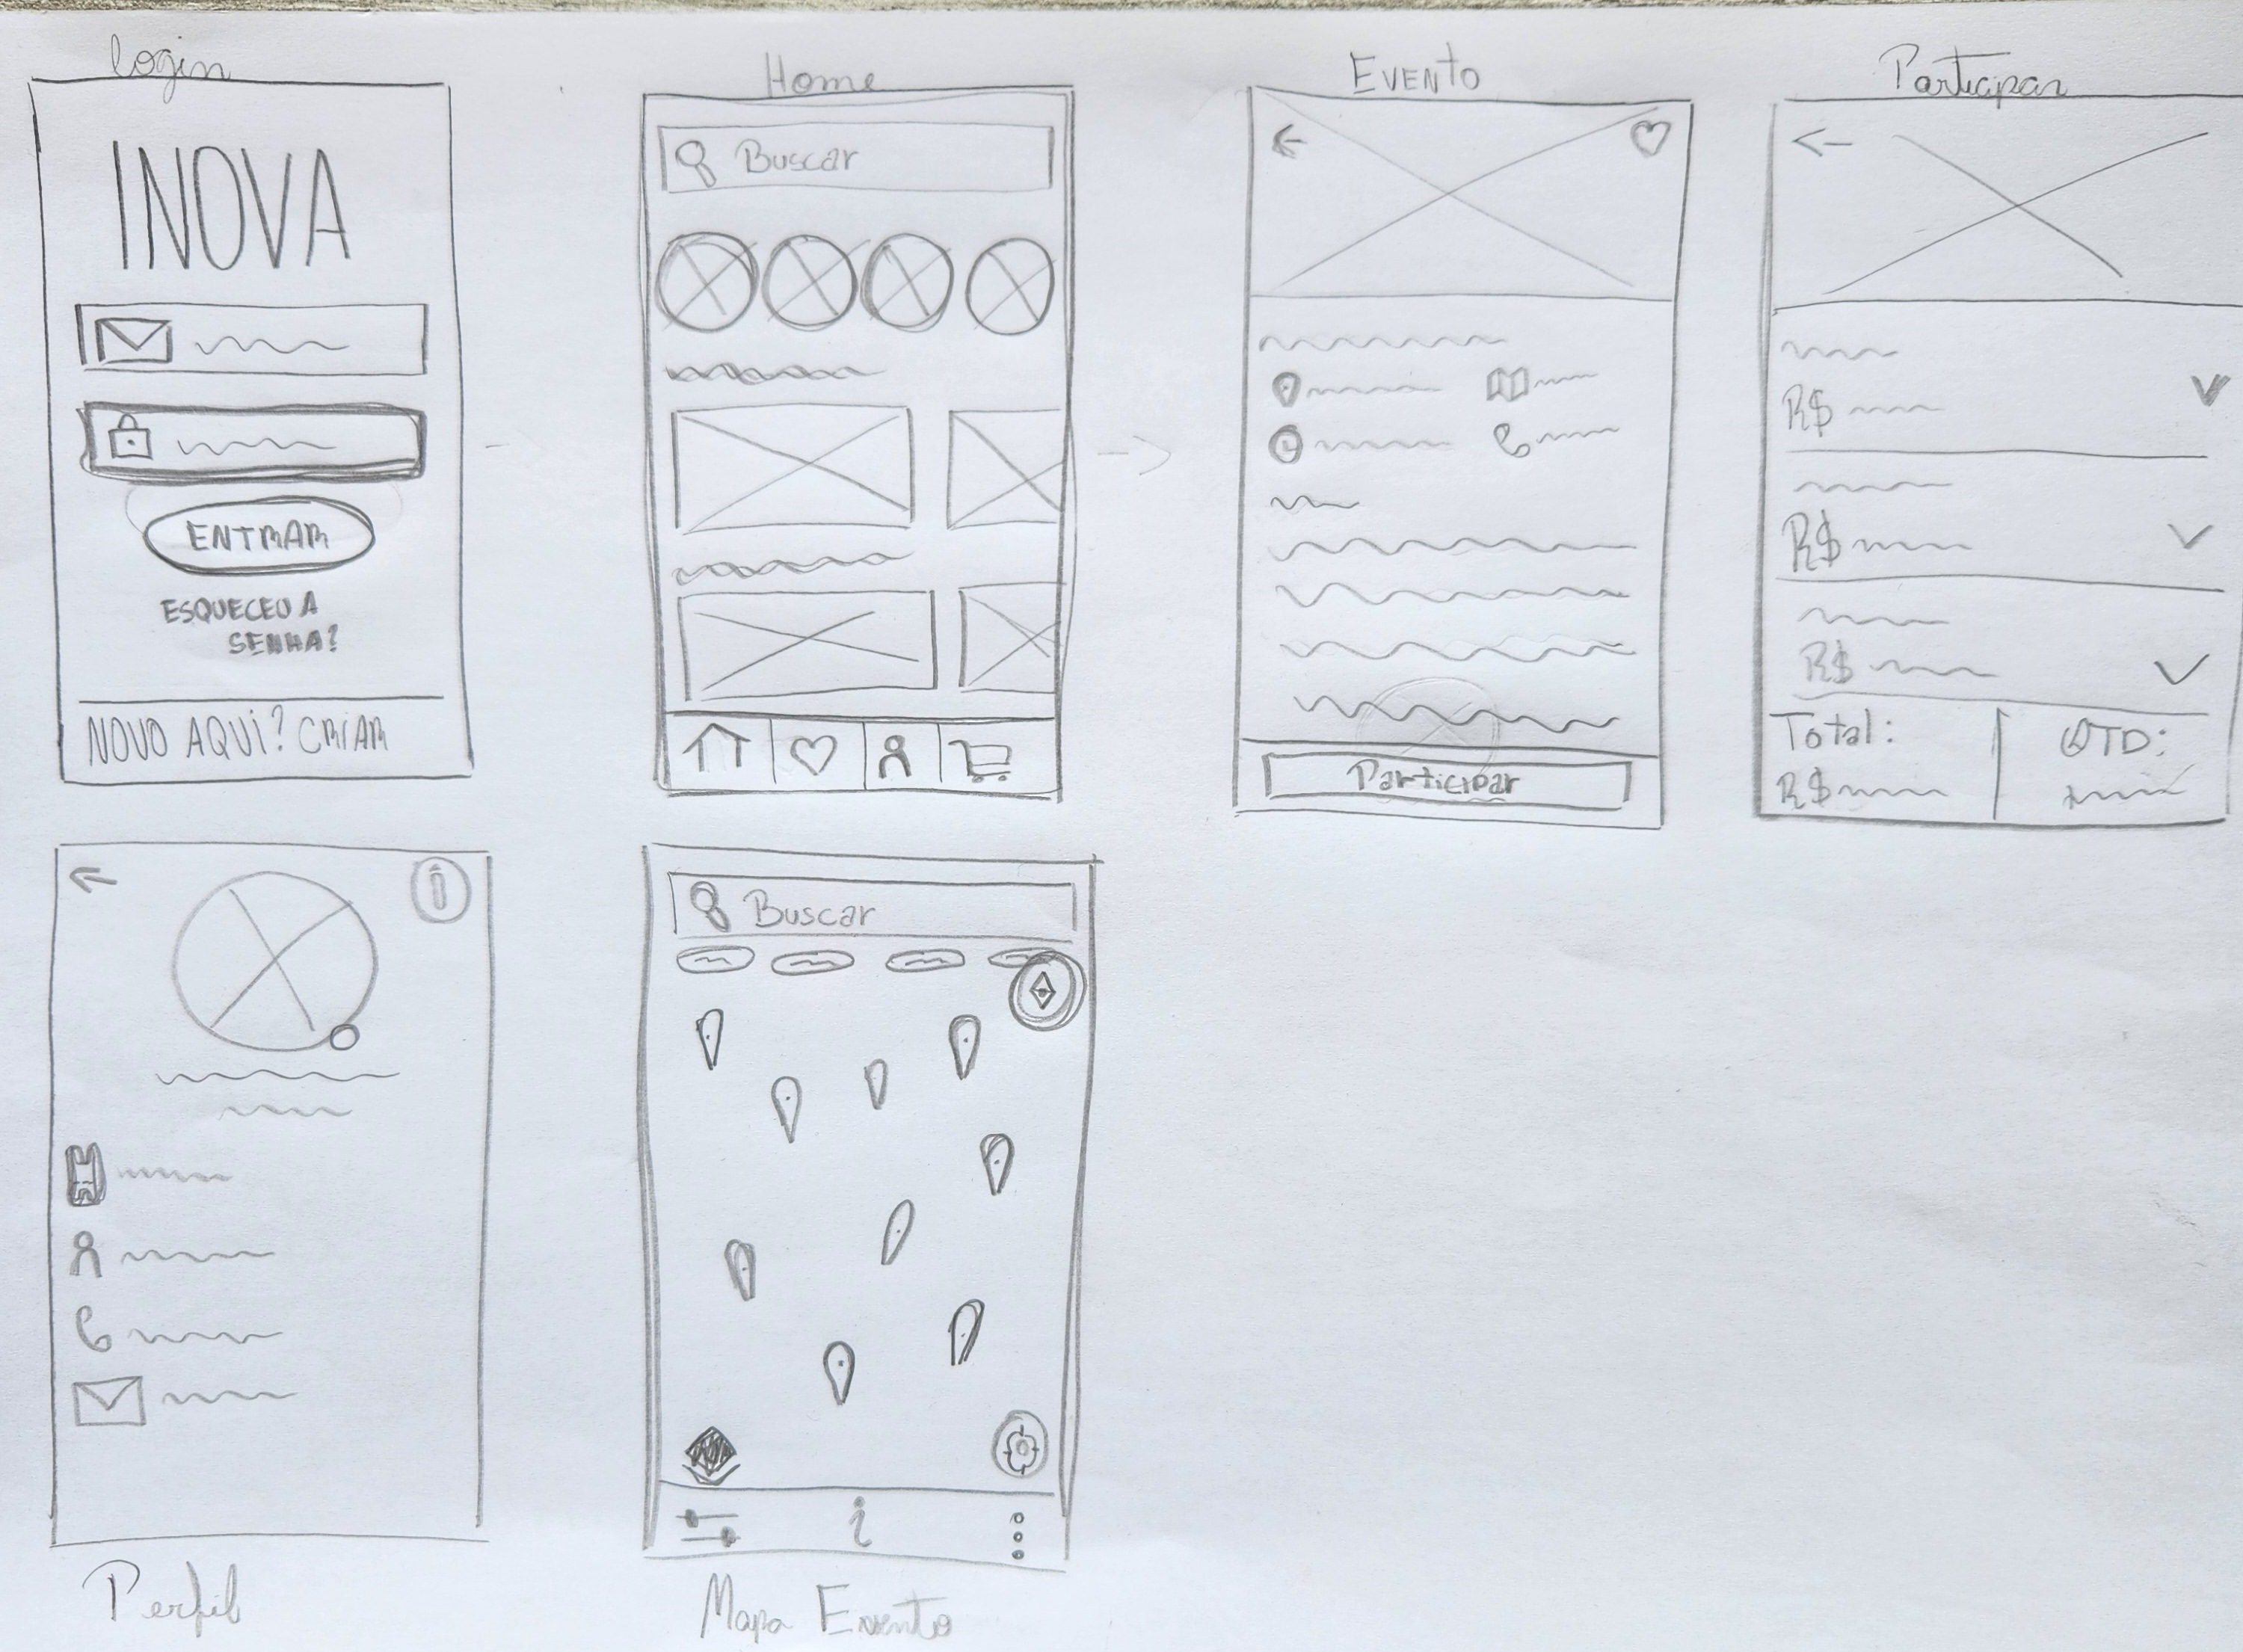 login
INOVA
ENTRAR
ESQUECEU A
SENHA?
NOVO AQUI? CRIAR
Home
Buscar
EVENTO
Participar
Participar
R$
R$
R$
Total:
R$
QTD:
Perfil
Buscar
i
Mapa Evento